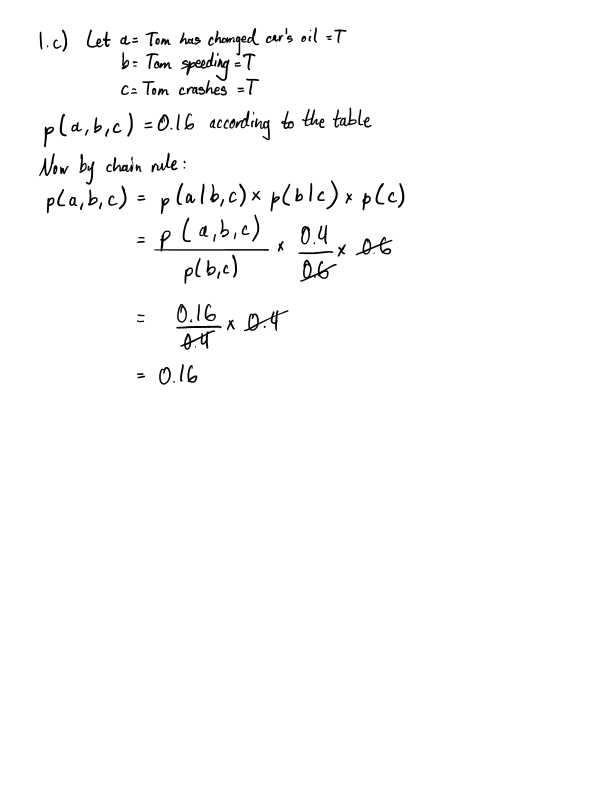 1.c) Let a = Tom has changed car's oil = T
b = Tom speeding = T
c = Tom crashes = T
p(a,b,c) = 0.16 according to the table
Now by chain rule:
p(a,b,c) = p(a|b,c) × p(b|c) × p(c)
= p(a,b,c) / p(b,c) × 0.4 / 0.6 × 0.6
= 0.16 / 0.4 × 0.4
= 0.16